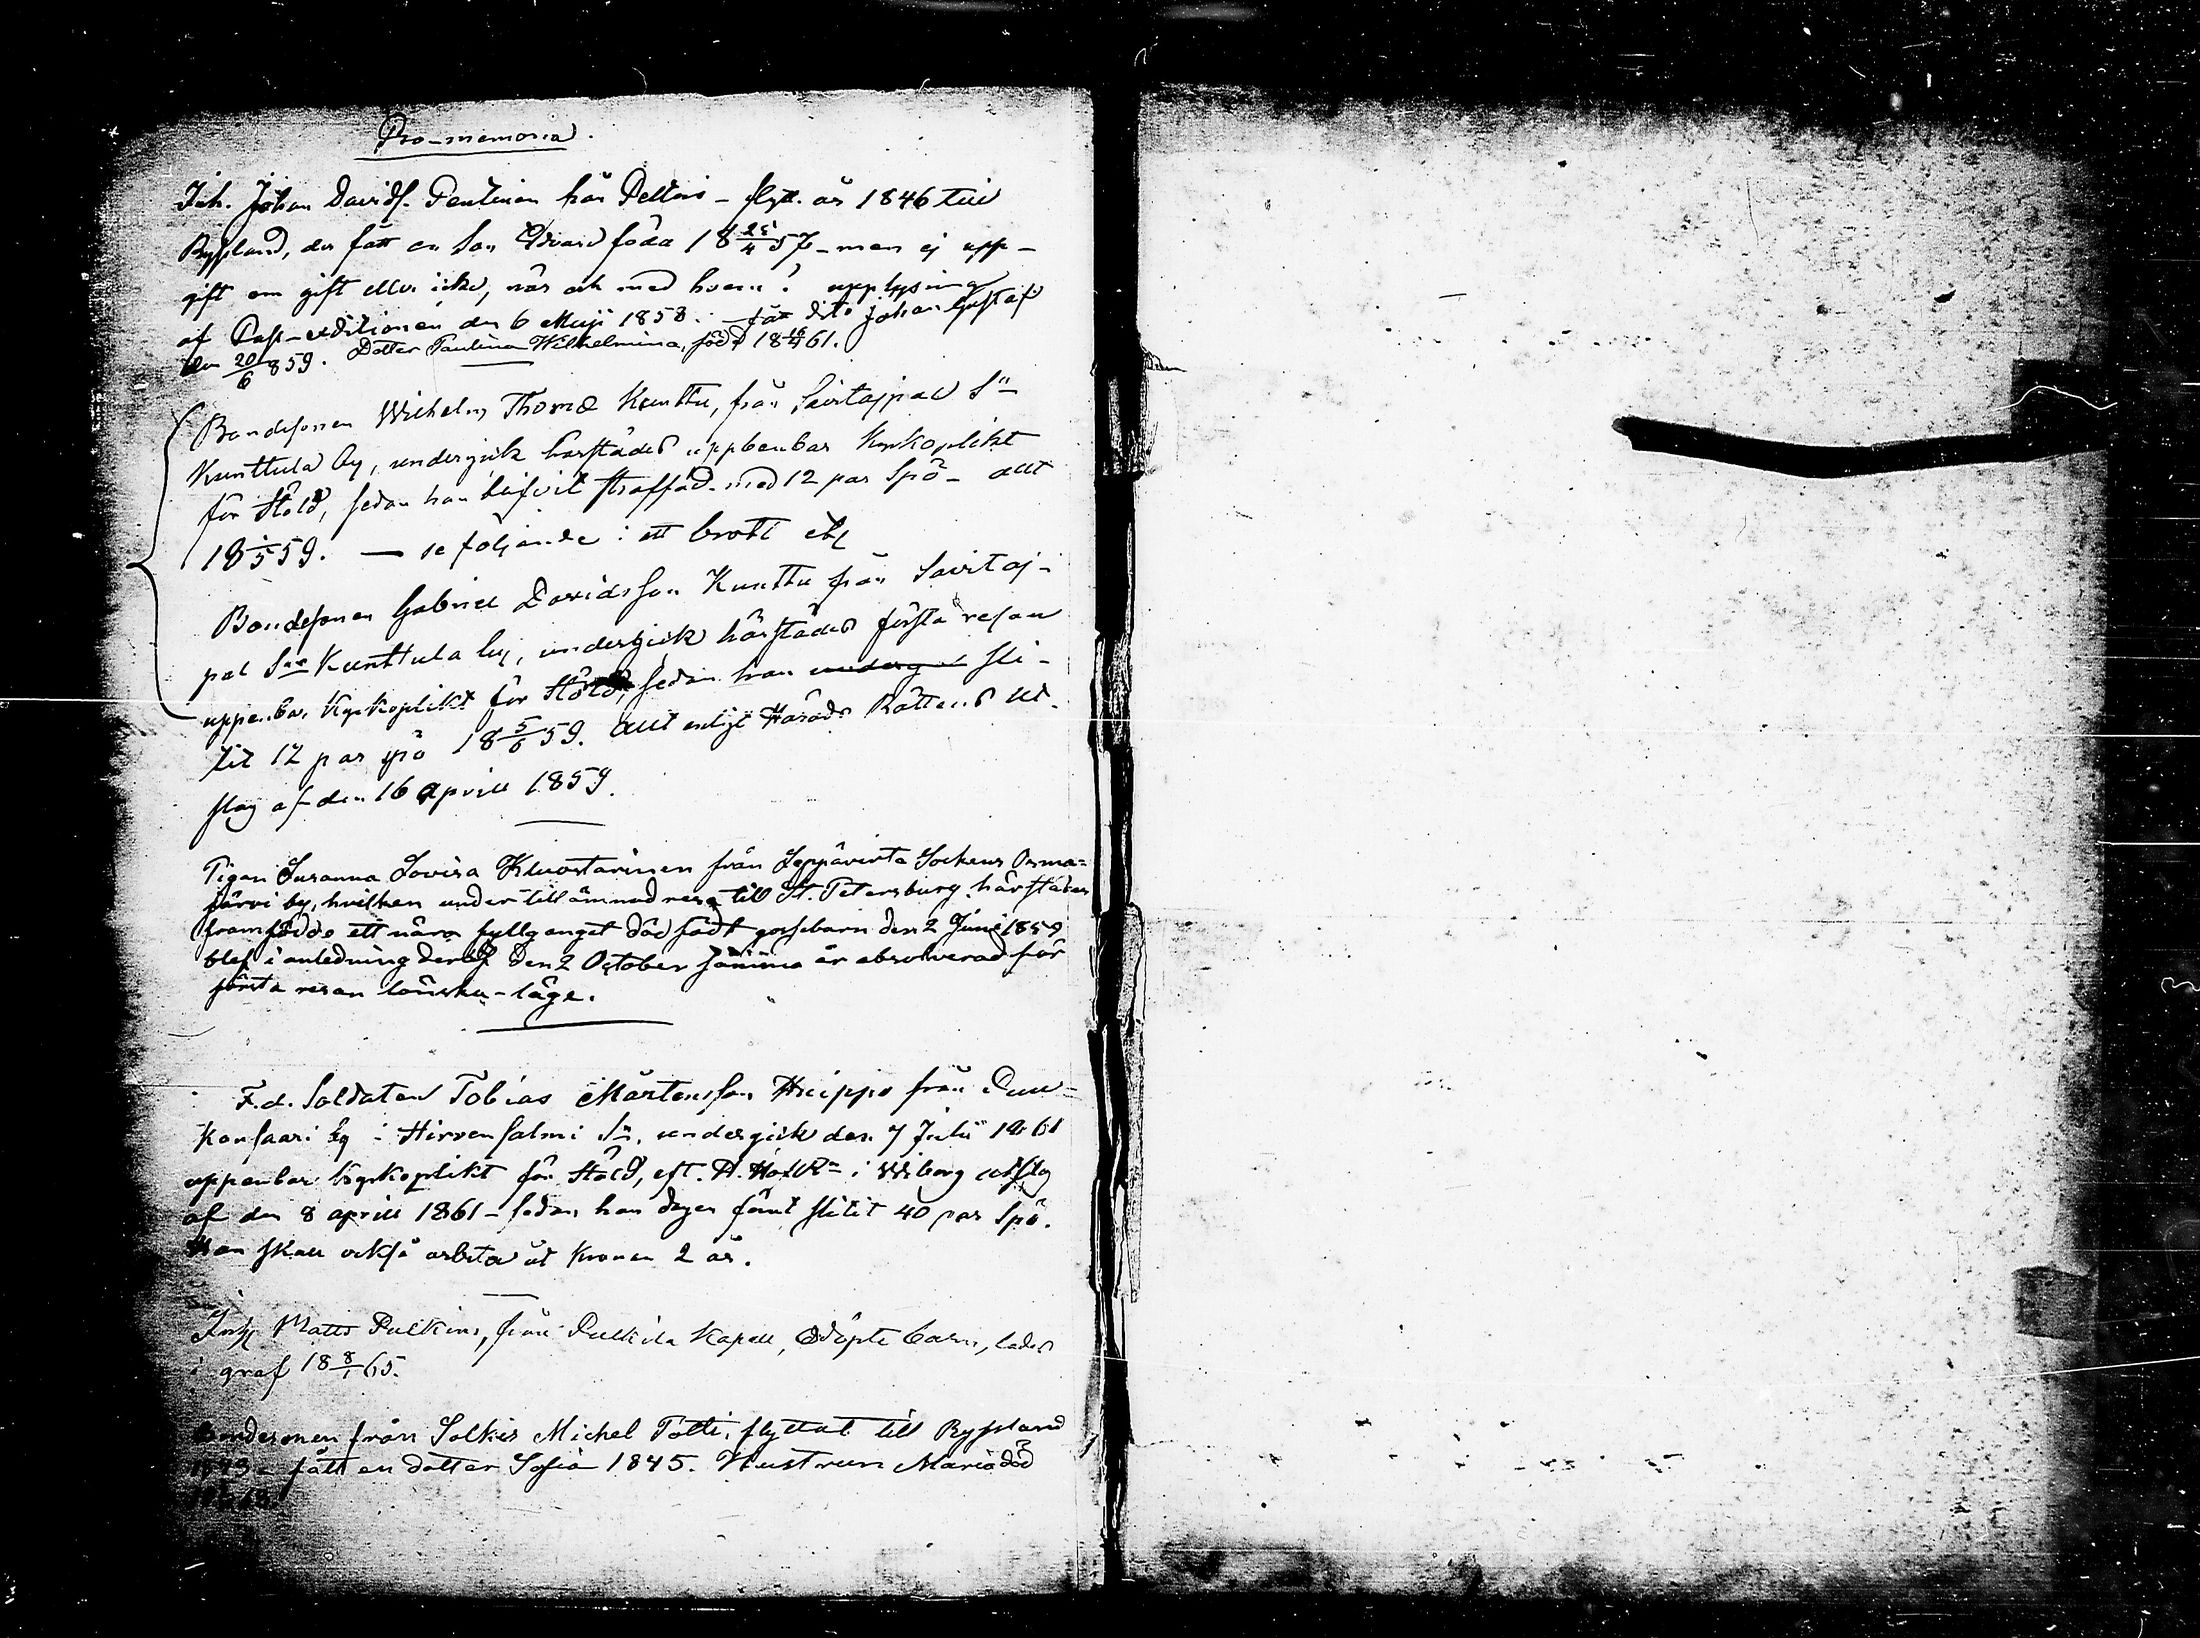 Pro-memoria.
Inh. Johan Davidss. Pentinen från Peltois - flytt. år 1846 till
Ryssland, der fått en Son Edvard föda 18 25/4 57 - men ej upp-
gift om gift eller icke, når och med hvem? upplysning
af Pass-exditionen den 6 Maji 1858. - fått dito Johan Gustaf
den 20/6 859. Dotter Paulina Wilhelmina, född 18 /4 61.
Bondesonen Wilhelm Thomæ Kunttu, från Savitaipal Sn
Kunttula by, undergick härstädes uppenbar Kyrkoplikt
för Stöld, sedan han blifvit straffad med 12 par Spö - allt
18 /5 59. — se följande: ett brott etc
Bondesonen Gabriel Davidsson Kunttu från Savitaj-
pal Sns Kunttula by, undergick härstädes första resan
uppenbar Kyrkoplikt för Stöld, sedan han undergått sli-
tit 12 par spö 18 5/6 59. allt enligt Härads Rättens Ut-
slag af den 16 april 1859.
Pigan Susanna Lovisa Kluostarinen från Leppävirta Sockens Osma-
järvi by, hvilken under tillämnad resa till St. Petersburg härstädes
framfödde ett nära fullgånget död födt gossebarn den 2 Juni 1859
blef i anledning deraf den 2 October samma år absolverad för
första resan lönska-läge.
F.d. Soldaten Tobias Mårtensson Huippo från Puu-
konsaari by i Hirvensalmi Sn, undergick den 7 Julii 1861
uppenbar kyrkoplikt för Stöld, eft. K. HofRn i Wiborg utslag
af den 8 april 1861 - sedan han dagen förut slitit 40 par Spö.
Han skall också arbeta åt Kronan 2 år.
Matts Pulkins, från Pulkila Kapell, Odöpte barn, lades
i graf 18 8/1 65.
Bondesonen från Solkis Michel Tötti, flyttat till Ryssland
1843 - fått en dotter Sofia 1845. Hustrun Maria död